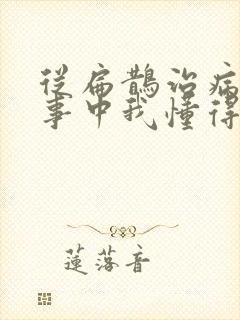 從扁鵲治病
事中我懂得
蓮落音